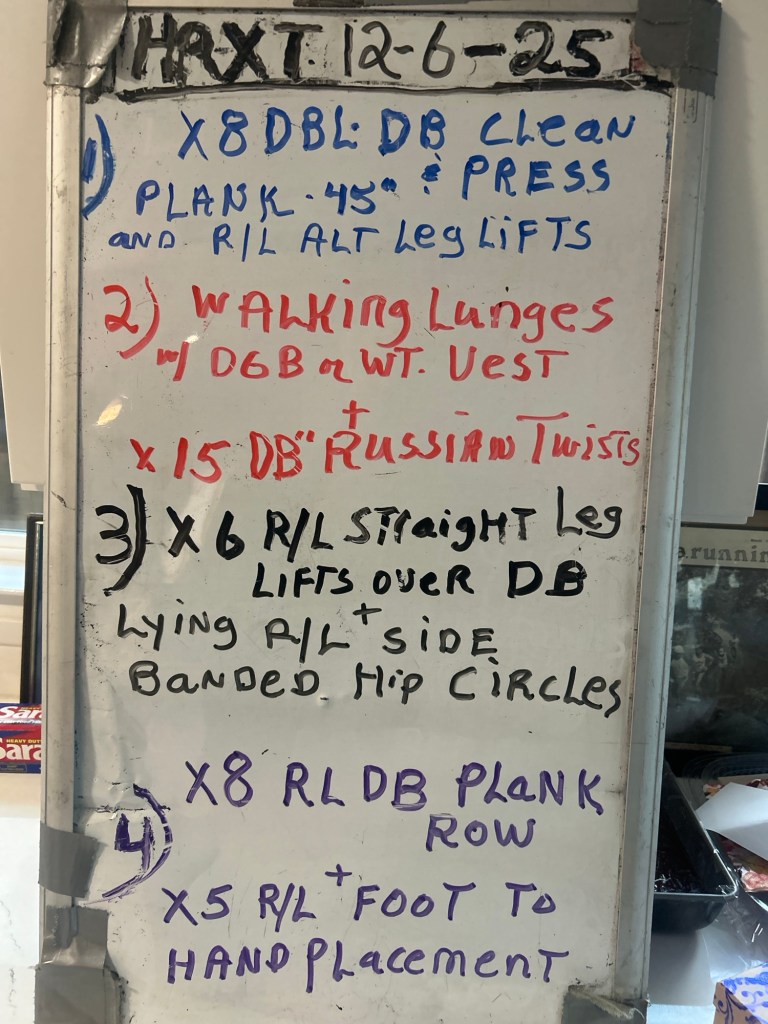 HRXT 12-6-25
1) X8 DBL. DB CLEAN
& PRESS
PLANK - 45°
AND R/L ALT Leg LIFTS
2) WALKing Lunges
w/ DGB or WT. VEST
+
x 15 DB" RUSSIAN TwisTS
3) X 6 R/L STraigHT Leg
LIFTS OVER DB
+
Lying R/L SIDE
BANDED Hip CIRCLES
4) X8 RL DB PLANK
ROW
+
X5 R/L FOOT TO
HAND PLacemenT
Sara
HEAVY DUTY
Sara
a.runnin